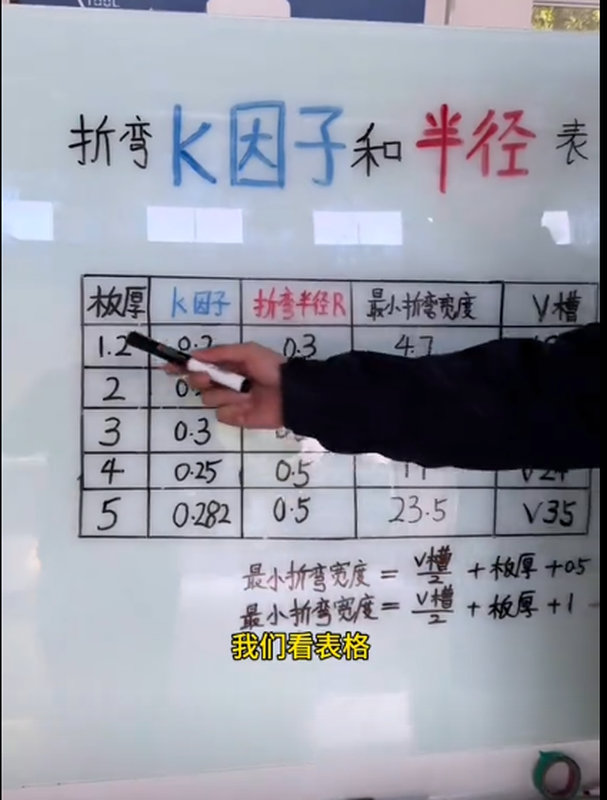 TOOL
折弯K因子和半径表
板厚 K因子 折弯半径R 最小折弯宽度 V槽
1.2 0.3 4.7
2
3 0.3
4 0.25 0.5
5 0.282 0.5 23.5 V35
最小折弯宽度 = V槽/2 + 板厚 + 0.5
最小折弯宽度 = V槽/2 + 板厚 + 1
我们看表格